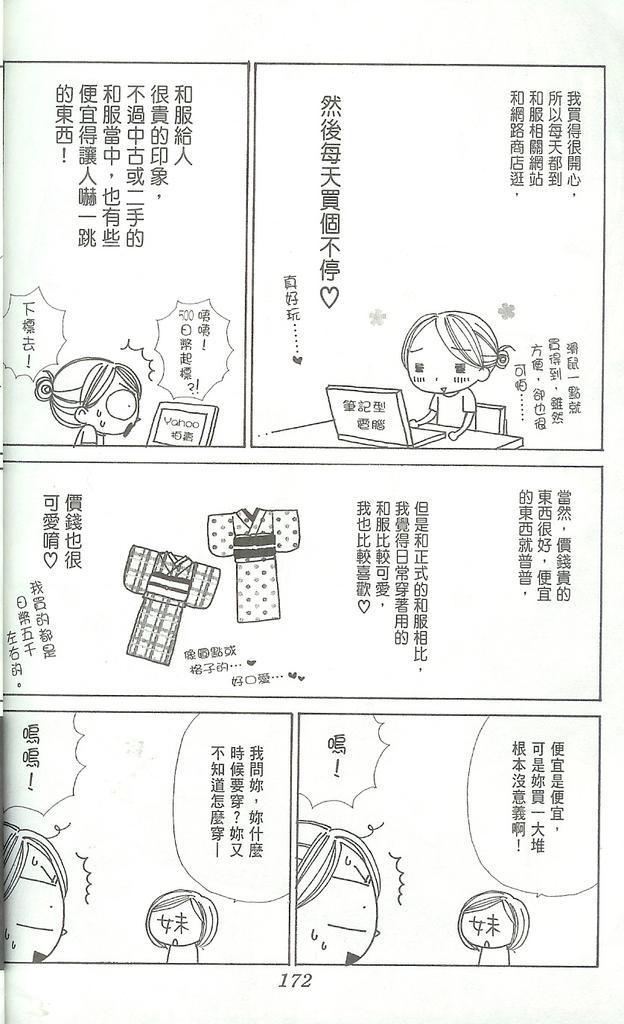 我買得很開心，
所以每天都到
和服相關網站
和網路商店逛，
然後每天買個不停♡
真好玩……♥
滑鼠一點就
買得到，雖然
方便，卻也很
可怕……
筆記型
電腦
和服給人
很貴的印象，
不過中古或二手的
和服當中，也有些
便宜得讓人嚇一跳
的東西！
咦咦！
500日幣起標？！
下標去！
Yahoo
拍賣
當然，價錢貴的
東西很好，便宜
的東西就普普，
但是和正式的和服相比，
我覺得日常穿著用的
和服比較可愛，
我也比較喜歡♡
像圓點或
格子的…♥
好口愛…♥♥
價錢也很
可愛唷♡
我買的都是
日幣五千
左右的。
便宜是便宜，
可是妳買一大堆
根本沒意義啊！
嗚！
妹
我問妳，妳什麼
時候要穿？妳又
不知道怎麼穿—
嗚嗚！
妹
172